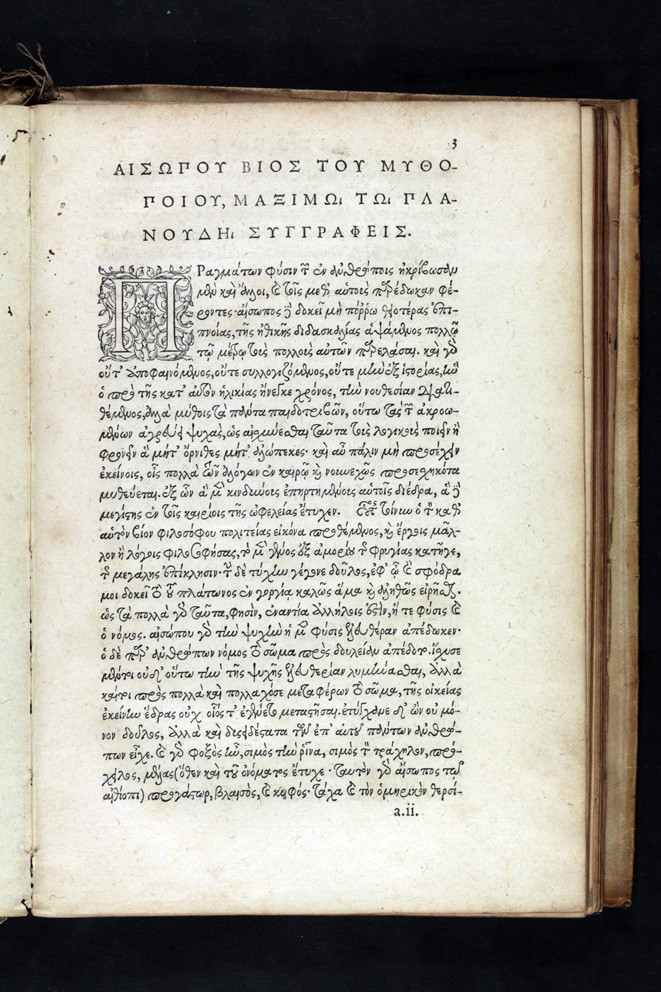 3
ΑΙΣΩΠΟΥ ΒΙΟΣ ΤΟΥ ΜΥΘΟ-
ΠΟΙΟΥ, ΜΑΞΙΜΩι ΤΩι ΠΛΑ-
ΝΟΥΔΗι ΣΥΓΓΡΑΦΕΙΣ.
ΠΡαγμάτων φύσιν τῶν ἐν ἀνθρώποις ἠκρίβωσαν
μὲν καὶ ἄλλοι, καὶ τοῖς μετ' αὐτοὺς παρέδωκαν φέ-
ροντες· αἴσωπος δὲ δοκεῖ μὴ πόρρω θειοτέρας ἐπι-
πνοίας, τῆς ἠθικῆς διδασκαλίας ἁψάμενος πολλῷ
τῷ μέτρῳ τοὺς πολλοὺς αὐτῶν παρελάσαι. καὶ γὰρ
οὔτ' ἀποφαινόμενος, οὔτε συλλογιζόμενος, οὔτε μὴν ἐξ ἱστορίας, ἣν
ὁ πρὸ τῆς κατ' αὐτὸν ἡλικίας ἤνεγκε χρόνος, τὴν νουθεσίαν
θέμενος, ἀλλὰ μύθοις τὰ πάντα παιδοτριβῶν, οὕτω τὰς τῶν ἀκροω-
μένων ἀγρεύει ψυχὰς, ὡς αἰσχύνεσθαι ταῦτα τοὺς λογικοὺς ποιεῖν ἢ
φρονεῖν ἃ μήτ' ὄρνιθες μήτ' ἀλώπεκες· καὶ αὖ πάλιν μὴ προσέχειν
ἐκείνοις, οἷς πολλὰ τῶν ἀλόγων ἐν καιρῷ καὶ νουνεχῶς προσεσχηκότα
μυθεύεται. ἐξ ὧν ἃ μὲν κινδύνους ἐπηρτημένους αὐτοῖς διέδρα, ἃ δὲ
μεγίστης ἐν τοῖς καιροῖς τῆς ὠφελείας ἔτυχεν. οὗτος τοίνυν ὁ τὸν καθ'
αὑτὸν βίον φιλοσόφου πολιτείας εἰκόνα προθέμενος, καὶ ἔργοις μᾶλ-
λον ἢ λόγοις φιλοσοφήσας, τὸ μὲν γένος ἐξ ἀμορίου τοῦ φρυγίας κατῆγε,
τοῦ μεγάλης ἐπίκλησιν· τὴν δὲ τύχην γέγονε δοῦλος, ἐφ' ᾧ καὶ σφόδρα
μοι δοκεῖ τὸ τοῦ πλάτωνος ἐν γοργίᾳ καλῶς ἅμα καὶ ἀληθῶς εἰρῆσθαι.
ὡς τὰ πολλὰ γὰρ ταῦτα, φησὶν, ἐναντία ἀλλήλοις ἐστὶν, ἥ τε φύσις καὶ
ὁ νόμος. αἰσώπου γὰρ τὴν ψυχὴν ἡ μὲν φύσις ἐλευθέραν ἀπέδωκεν·
ὁ δὲ παρ' ἀνθρώπων νόμος τὸ σῶμα πρὸς δουλείαν ἀπέδοτο. ἴσχυσε
μέντοι οὐδ' οὕτω τὴν τῆς ψυχῆς ἐλευθερίαν λυμήνασθαι, ἀλλὰ
καίτοι πρὸς πολλὰ καὶ πολλαχόσε μεταφέρων τὸ σῶμα, τῆς οἰκείας
ἐκείνην ἕδρας οὐχ οἷός τ' ἐγένετο μεταστῆσαι. ἐτύγχανε δ' ὢν οὐ μό-
νον δοῦλος, ἀλλὰ καὶ δυσειδέστατα τῶν ἐπ' αὐτοῦ πάντων ἀνθρώ-
πων εἶχε. καὶ γὰρ φοξὸς ἦν, σιμὸς τὴν ῥῖνα, σιμὸς τὸν τράχηλον, πρό-
χειλος, μέλας (ὅθεν καὶ τοῦ ὀνόματος ἔτυχε· ταυτὸν γὰρ αἴσωπος τῷ
αἰθίοπι) προγάστωρ, βλαισὸς, καὶ κυφός· τάχα καὶ τὸν ὁμηρικὸν θερσί-
a.ii.